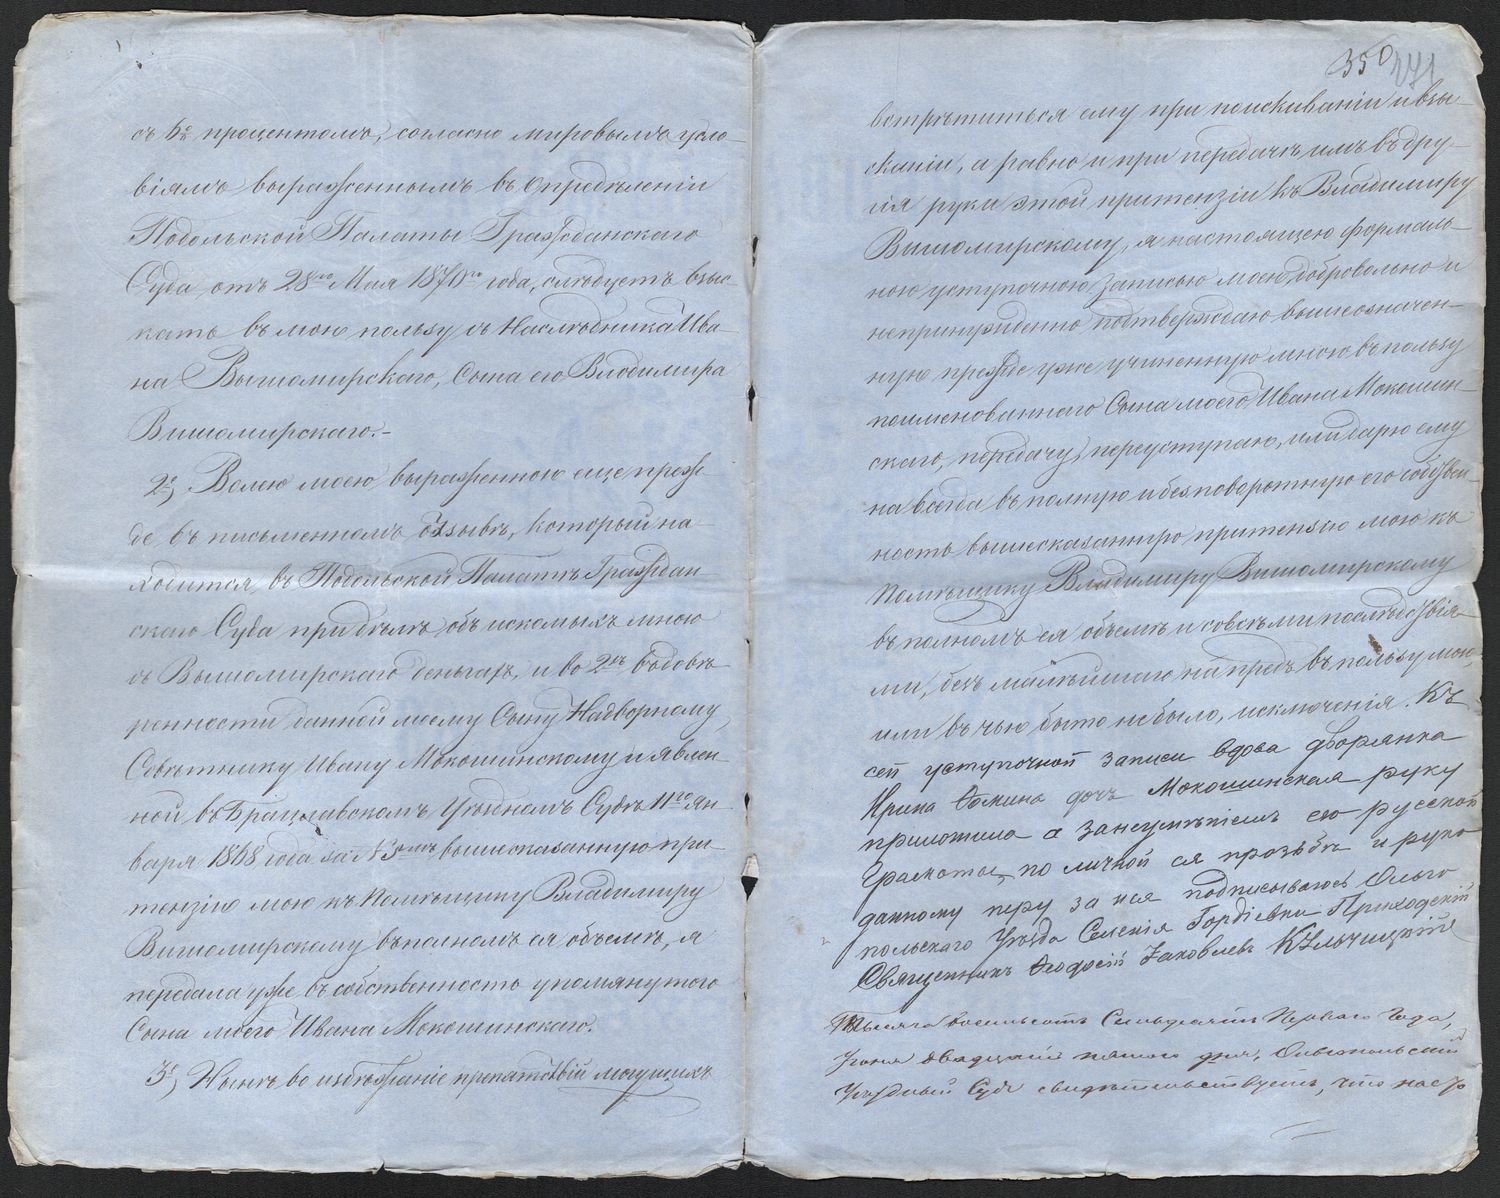 съ 6% процентомъ, согласно мировымъ усло-
віямъ выраженнымъ въ опредѣленіи
Подольской Палаты Гражданскаго
Суда отъ 28го Мая 1870го года, слѣдуетъ взыс-
кать въ мою пользу съ Наслѣдника Ива-
на Вышомирскаго, сына его Владимира
Вишомирскаго.-
2е, Волею моею выраженною еще преж-
де въ письменномъ отзывѣ, который на-
ходится въ Подольской Палатѣ Граждан-
скаго Суда при дѣлѣ объ искомыхъ мною
съ Вышомирскаго деньгахъ, и во 2хъ въ довѣ-
ренности данной моему Сыну Надворному
Совѣтнику Ивану Мокошинскому и явлен-
ной въ Брацлавскомъ Уѣздномъ Судѣ 11го Ян-
варя 1868 года за № 3мъ вышесказанную при-
тензію мою къ Помѣщику Владимиру
Вишомирскому въ полномъ ея объемѣ, я
передала уже въ собственность упомянутого
Сына моего Ивана Мокошинскаго.
3е, Нынѣ во избѣжаніе препятствій могущихъ
350 271
встрѣтиться ему при поискиваніи и взы-
сканіи, а равно и при передачѣ имъ въ дру-
гія руки этой притензіи къ Владимиру
Вишомирскому, я настоящею формаль-
ною уступочною записью моею добровольно и
непринужденно подтверждаю вышеозначен-
ную прежде уже учиненную мною въ пользу
поименованнаго Сына моего Ивана Мокошин-
скаго, передачу, переуступаю, или дарю ему
на всегда въ полную и безповоротную его собствен-
ность вышесказанную притензію мою къ
Помѣщику Владимиру Вишомирскому
въ полномъ ея объемѣ и со всѣми послѣдствія-
ми, безъ малѣйшаго на предъ въ пользу мою,
или въ чью бы то не было, исключенія. Къ
сей уступочной записи вдова дворянка
Ирина Фомина дочь Мокошинская руку
приложила а за неумѣніемъ ею русской
грамоты, по личной ея прозьбѣ и руко
данному перу за нея подписываюсь Ольго
польскаго Уѣзда Селенія Гордіевки Приходскій
Священникъ Феодосій Яковлевъ Кульчицкій
Тысяча восемьсотъ Семьдесятъ Перваго Года,
Іюня двадцать пятого дня, Ольгопольскій
Уѣздный Судъ свидѣтельствуетъ, что наст